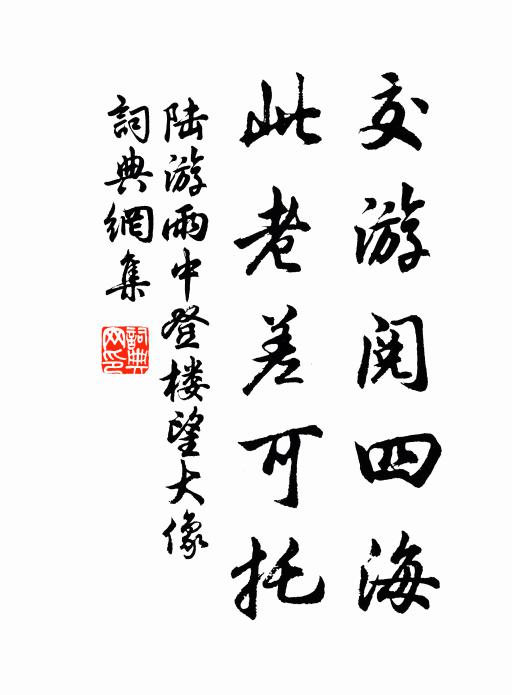 交游阅四海
此老差可托
陆游雨中登楼望大像
詞典網集
詞典网印